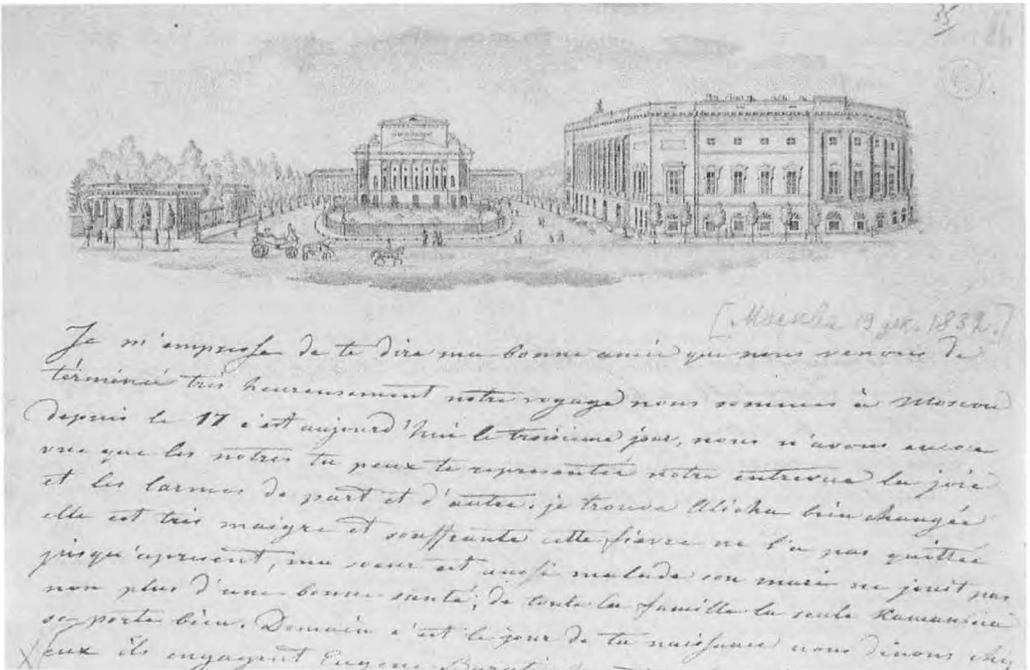 35
[Москва 19 дек. 1832.]
Je m'empresse de te dire ma bonne amie que nous venons de
términée très heureusement notre voyage nous sommes à Moscou
depuis le 17 c'est aujourd'hui le troisième jour, nous n'avons encore
vue que les notres tu peux te representée notre entrevue la joie
et les larmes de part et d'autre. je trouve Alicha bien changée
elle est très maigre et souffrante cette fièvre ne l'a pas quittée
jusqu'apresent, ma sœur est aussi malade son mari ne jouit pas
non plus d'une bonne santé; de toute la famille la seule
se porte bien. Demain c'est le jour de ta naissance nous dinons chez
eux ils engagent Eugene